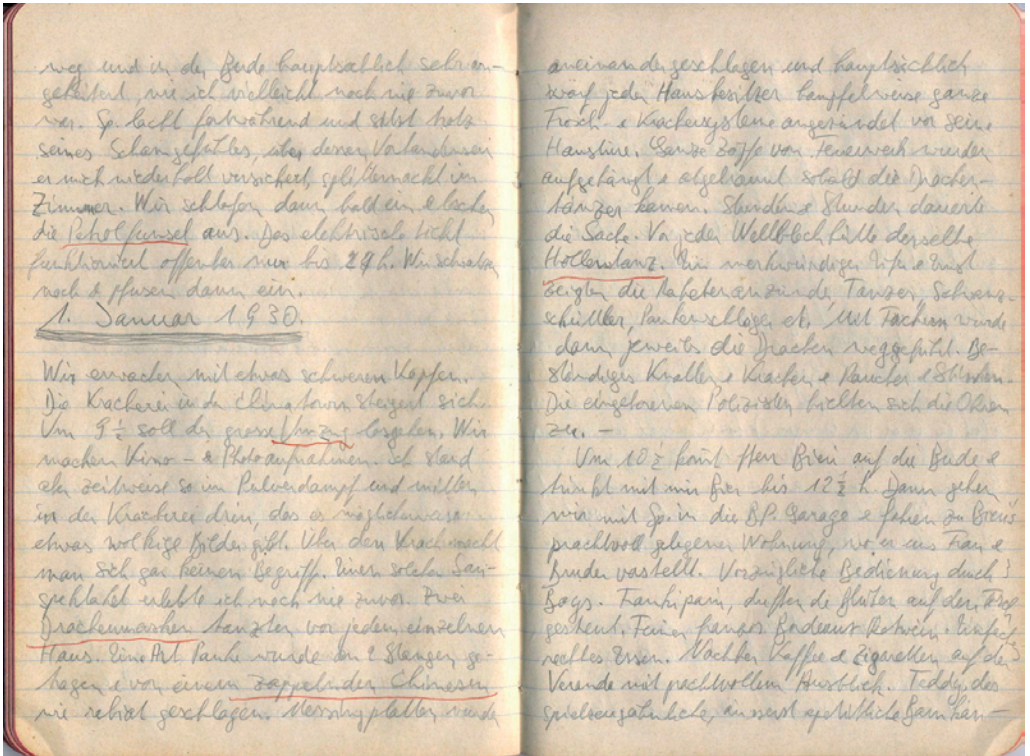 weg und in der Bude hauptsächlich sehr an-
geheitert, wie ich vielleicht noch nie zuvor
war. Sp. lacht fortwährend und steht trotz
seines Schamgefühles, über dessen Vorhandensein
er mich wiederholt versichert, splitternackt im
Zimmer. Wir schlafen dann bald ein & löschen
die Petrolfunsel aus. Das elektrische Licht
funktioniert offenbar nur bis 24 h. Wir schwatzen
noch & pfusen dann ein.
1. Januar 1930.
Wir erwachen mit etwas schweren Köpfen.
Die Kracherei in der Chinatown steigert sich.
Um 9 ½ soll der grosse Umzug losgehen. Wir
machen Kino- & Photoaufnahmen. Ich stand
aber zeitweise so im Pulverdampf und mitten
in der Kracherei drin, das es möglicherweise
etwas wolkige Bilder gibt. Über den Krach macht
man sich gar keinen Begriff. Einen solchen Sau-
spektakel erlebte ich noch nie zuvor. Zwei
Drachenmasken tanzten vor jedem einzelnen
Haus. Eine Art Pauke wurde an 2 Stangen ge-
tragen & von einem zappelnden Chinesen
wie rabiat geschlagen. Messingplatten wurden
aneinander geschlagen und hauptsächlich
warf jeder Hausbesitzer hampfelweise ganze
Frosch- & Krachersysteme angezündet vor seine
Haustüre. Ganze Zöpfe von Feuerwerk wurden
aufgehängt & abgebrannt sobald die Drachen-
tänzer kamen. Stunden & Stunden dauerte
die Sache. Vor jeder Wellblechhütte derselbe
Höllentanz. Ein merkwürdiger Eifer & Ernst
zeigten die Raketenanzünder, Tänzer, Schwanz-
schüttler, Paukenschläger etc. Mit Fächern wurde
dann jeweils die Drachen weggeführt. Be-
ständiges Knallen & Krachen & Rauchen & Stinken.
Die eingeborenen Polizisten hielten sich die Ohren
zu. –
Um 10 ½ kommt Herr Bieri auf die Bude &
trinkt mit mir Bier bis 12 ½ h. Dann gehen
wir mit Sp. in die B.P. Garage & fahren zu Bieris
prachtvoll gelegener Wohnung, wo er uns Frau &
Bruder vorstellt. Vorzügliche Bedienung durch 3
Boys. Frankipani, duftende Blüten auf den Tisch
gestreut. Feiner französ. Bordeaux Rotwein. Einfach
rechtes Essen. Nachher Kaffee & Zigaretten auf der
Veranda mit prachtvollem Ausblick. Teddy, das
spielzeugähnliche, äusserst